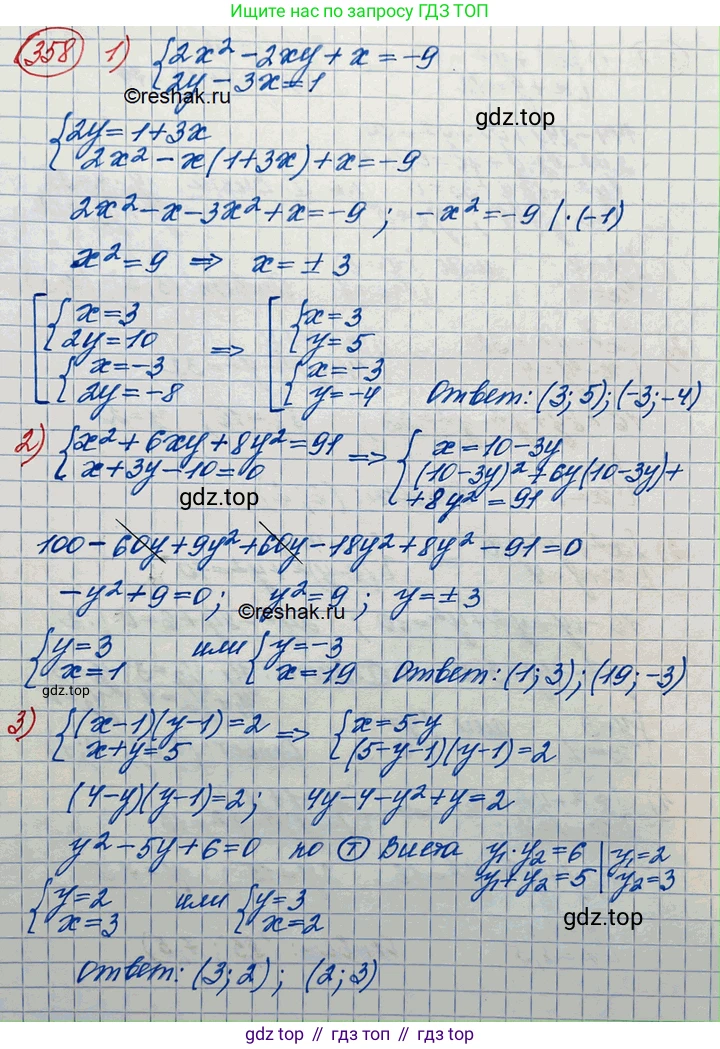 Ищите нас по запросу ГДЗ ТОП
358 1) {2x² - 2xy + x = -9
{2y - 3x = 1
©reshak.ru
gdz.top
{2y = 1 + 3x
{2x² - x(1 + 3x) + x = -9
2x² - x - 3x² + x = -9 ; -x² = -9 | ·(-1)
x² = 9 ⇒ x = ± 3
[{x = 3
{2y = 10
{x = -3
{2y = -8
⇒
[{x = 3
{y = 5
{x = -3
{y = -4
Ответ: (3; 5); (-3; -4)
2) {x² + 6xy + 8y² = 91
{x + 3y - 10 = 0
⇒ {x = 10 - 3y
{(10 - 3y)² + 6y(10 - 3y) +
+ 8y² = 91
gdz.top
100 - 60y + 9y² + 60y - 18y² + 8y² - 91 = 0
-y² + 9 = 0; y² = 9; y = ± 3
©reshak.ru
{y = 3
{x = 1
или {y = -3
{x = 19
Ответ: (1; 3); (19; -3)
gdz.top
3) {(x - 1)(y - 1) = 2
{x + y = 5
⇒ {x = 5 - y
{(5 - y - 1)(y - 1) = 2
(4 - y)(y - 1) = 2; 4y - 4 - y² + y = 2
y² - 5y + 6 = 0 по Т Виета y₁ · y₂ = 6 | y₁ = 2
y₁ + y₂ = 5 | y₂ = 3
{y = 2
{x = 3
или {y = 3
{x = 2
gdz.top
Ответ: (3; 2); (2; 3)
gdz top // гдз топ // gdz.top